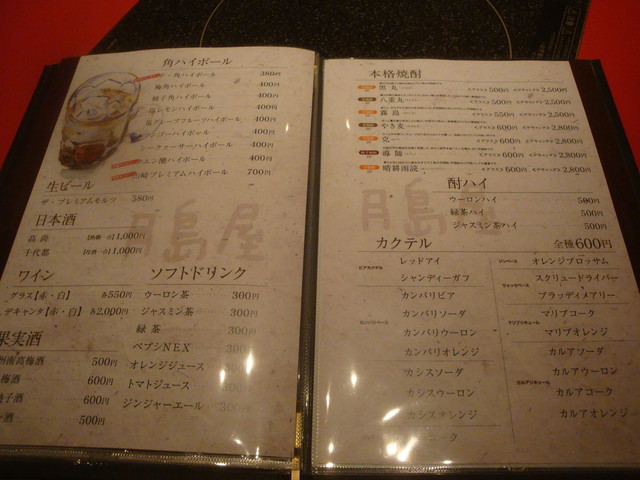 角ハイボール
ザ・角ハイボール 380円
梅角ハイボール 400円
柚子角ハイボール 400円
塩レモンハイボール 400円
塩グレープフルーツハイボール 400円
ジンジャーハイボール 400円
シークァーサーハイボール 400円
クエン酸ハイボール 400円
山崎プレミアムハイボール 700円
生ビール
ザ・プレミアムモルツ 580円
日本酒
1,000円
千代都 1,000円
ワイン
グラス【赤・白】 各550円
デキャンタ【赤・白】 各2,000円
果実酒
州南高梅酒 500円
梅酒 600円
子酒 600円
酒 500円
ソフトドリンク
ウーロン茶 300円
ジャスミン茶 300円
緑茶 300円
ペプシNEX 300円
オレンジジュース 300円
トマトジュース 300円
ジンジャーエール 300円
月島屋
本格焼酎
黒丸 500円 2,500円
八重丸 500円 2,500円
霧島 550円 2,500円
やき麦 600円 2,800円
克 600円 2,800円
導師 600円 2,800円
晴耕雨読 600円 2,800円
酎ハイ
ウーロンハイ 500円
緑茶ハイ 500円
ジャスミン茶ハイ 500円
月島屋
カクテル 全種600円
ビアカクテル
レッドアイ
シャンディーガフ
カンパリビア
カンパリソーダ
カンパリウーロン
カンパリオレンジ
カシスソーダ
カシスウーロン
カシスオレンジ
コーク
ジンベース
オレンジブロッサム
ウォッカベース
スクリュードライバー
ブラッディメアリー
マリブリキュール
マリブコーク
マリブオレンジ
カルアリキュール
カルアソーダ
カルアウーロン
カルアコーク
カルアオレンジ